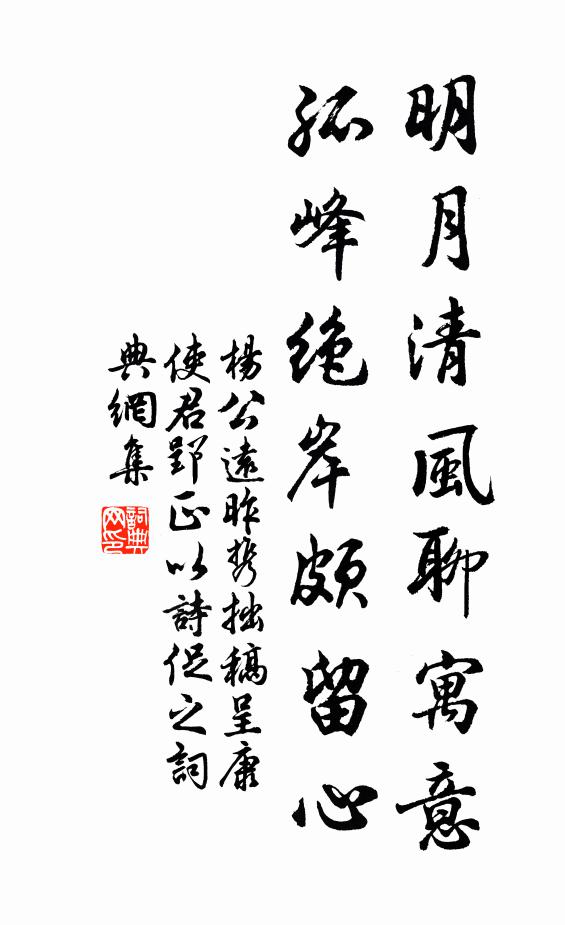 明月清風聊寓意
孤峰絶岸頗留心
楊公遠昨携拙稿呈康
使君郢正以詩促之詞
典網集
詞典
网印